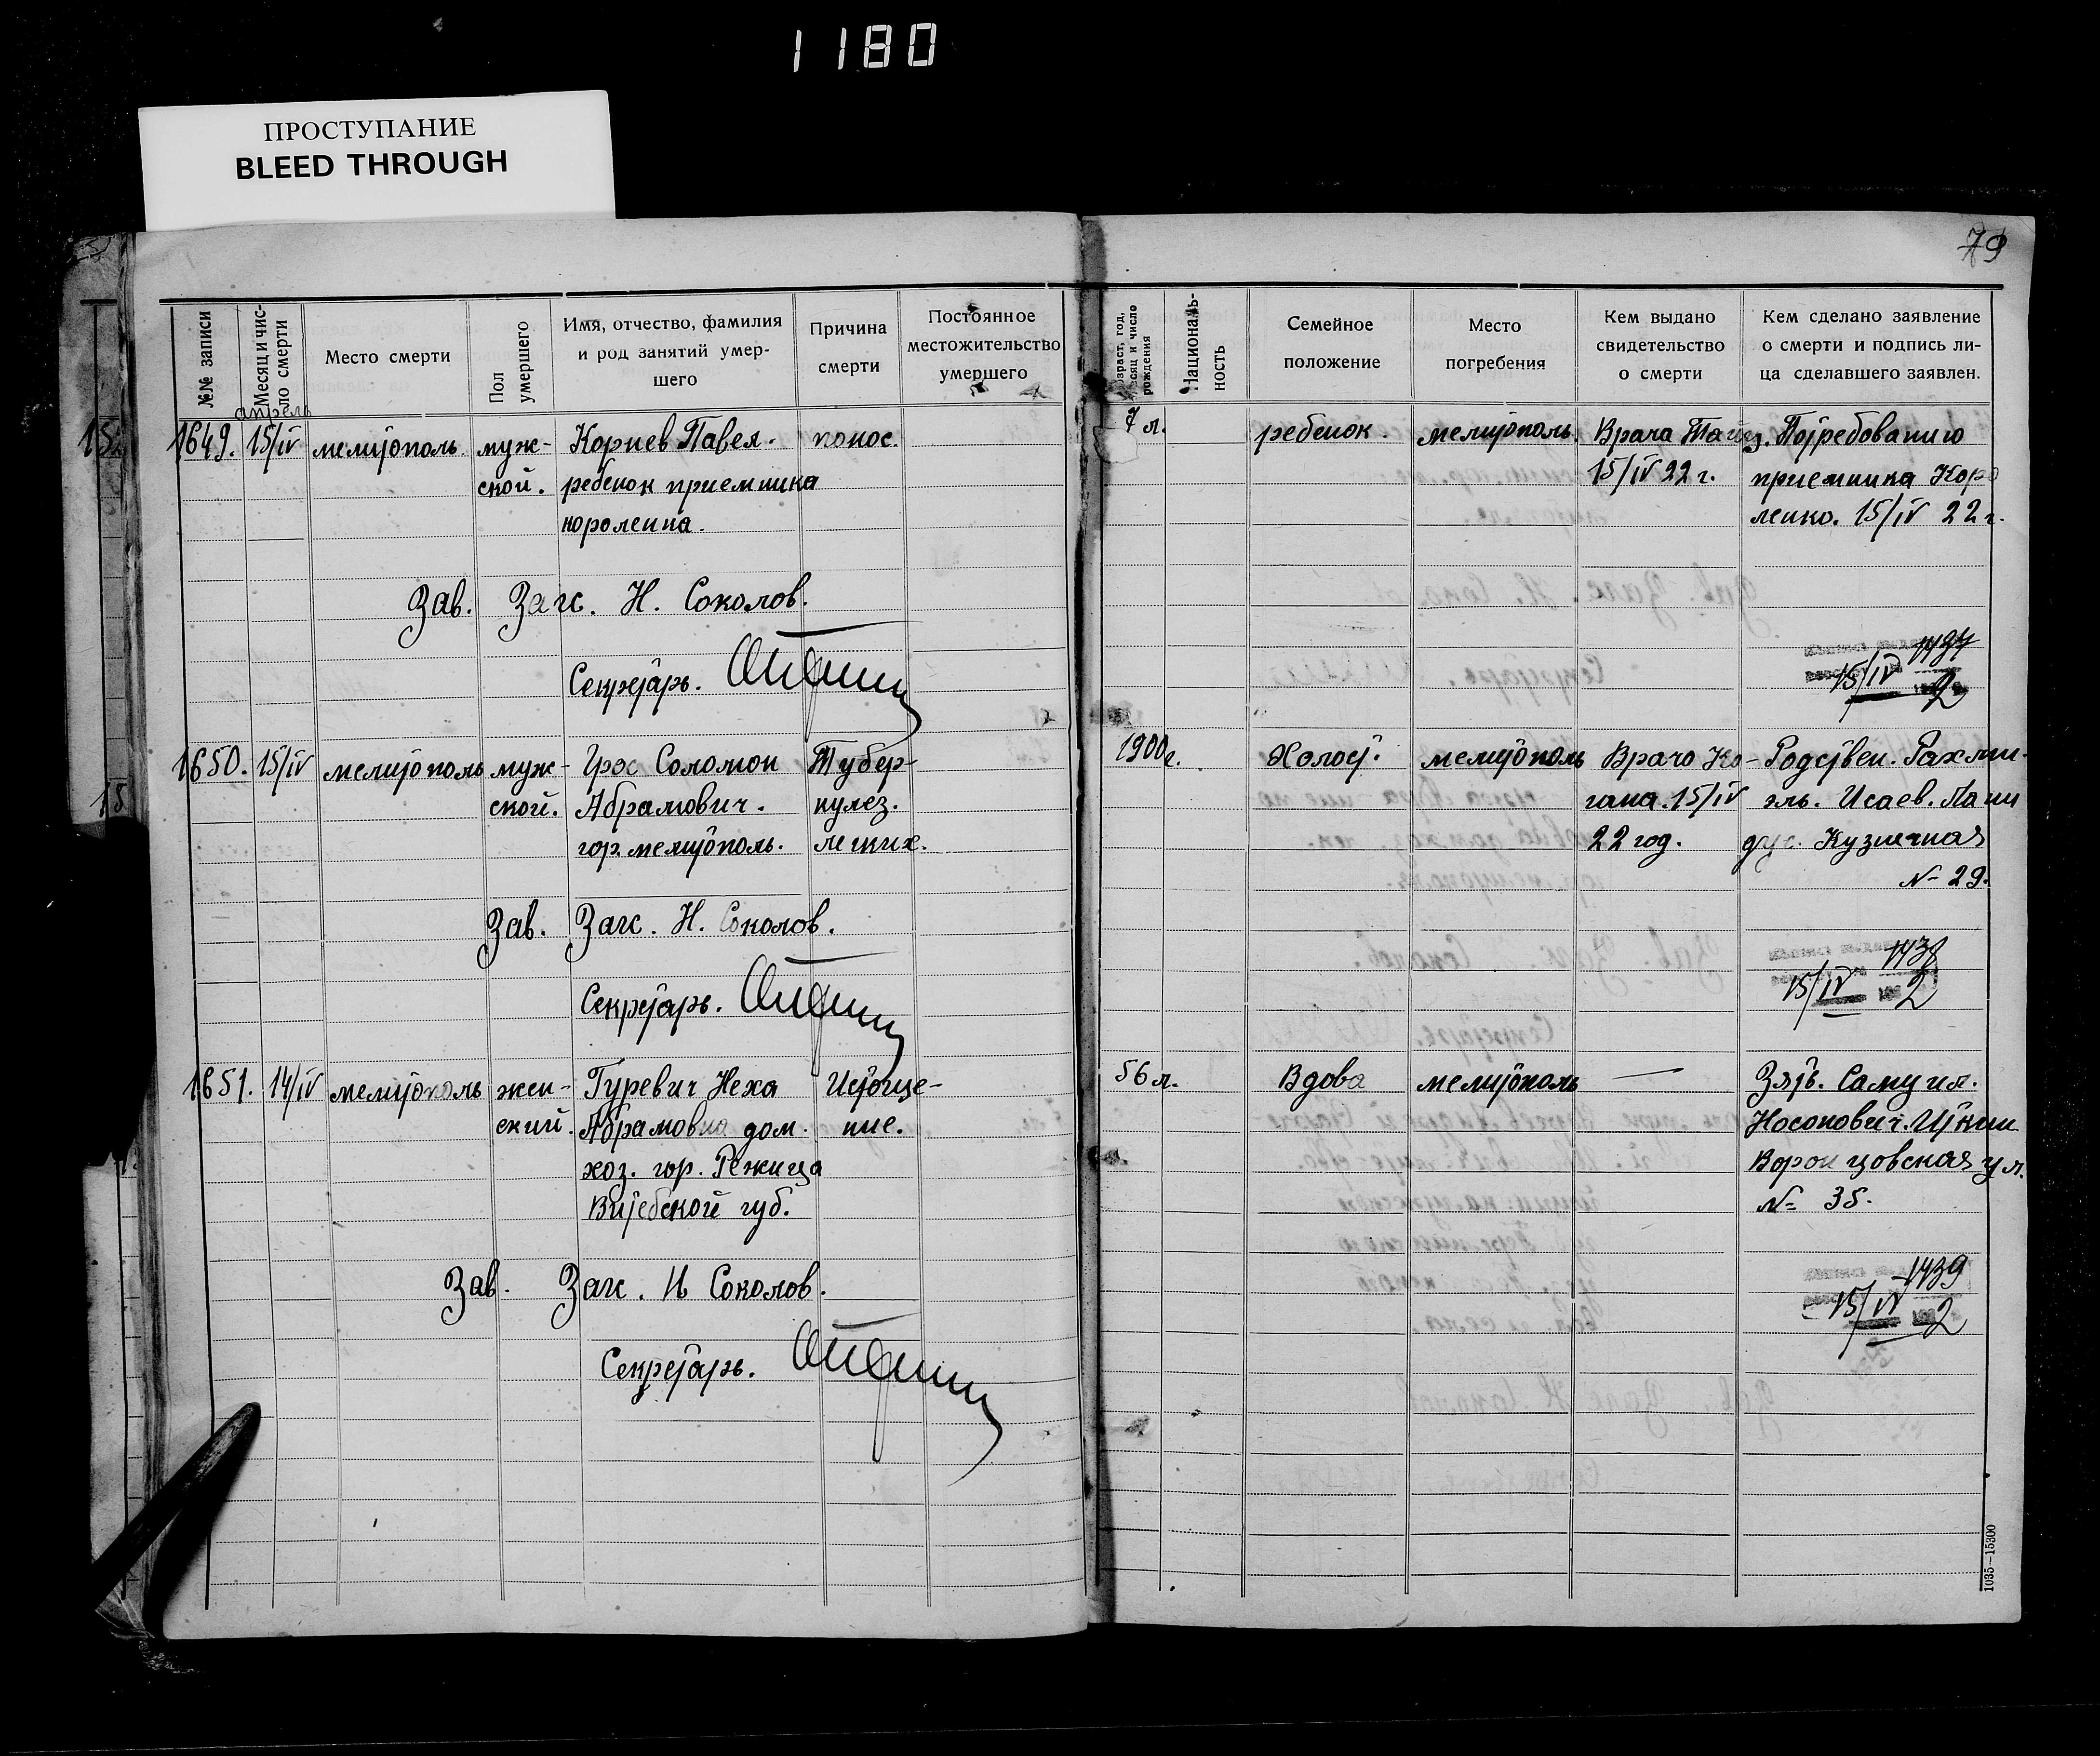 1180
ПРОСТУПАНИЕ
BLEED THROUGH
79
№№ записи
Месяц и число смерти
Место смерти
Пол умершего
Имя, отчество, фамилия
и род занятий умер-
шего
Причина
смерти
Постоянное
местожительство
умершего
Националь-
ность
Семейное
положение
Место
погребения
Кем выдано
свидетельство
о смерти
Кем сделано заявление
о смерти и подпись ли-
ца сделавшего заявлен.
апрель
1649. 15/IV мелитополь муж- Корнев Павел. понос. 7 л. ребенок. мелитополь. Врача Потребованию
ской. ребенок приемника 15/IV 22 г. приемника Коро
короленка. ленко. 15/IV 22 г.
Зав. Загс. Н. Соколов.
Секретарь.
1437
15/IV 2
1650. 15/IV мелитополь муж- Грос Соломон Тубер- 1900 г. Холост. мелитополь Врача Ко- Родствен.
ской. Абрамович. кулез. гана. 15/IV Исаев.
гор. мелитополь. легких. 22 год. Кузнечная
№ 29.
Зав. Загс. Н. Соколов.
Секретарь.
1438
15/IV 2
1651. 14/IV мелитополь жен- Гуревич Неха Истоще- 56 л. Вдова мелитополь — Зять. Самуил.
ский. Абрамовна дом. ние. Носонович. Иткин
хоз. гор. Режица Воронцовская ул.
Витебской губ. № 35.
Зав. Загс. Н Соколов.
Секретарь.
1439
15/IV 2
1035—15300